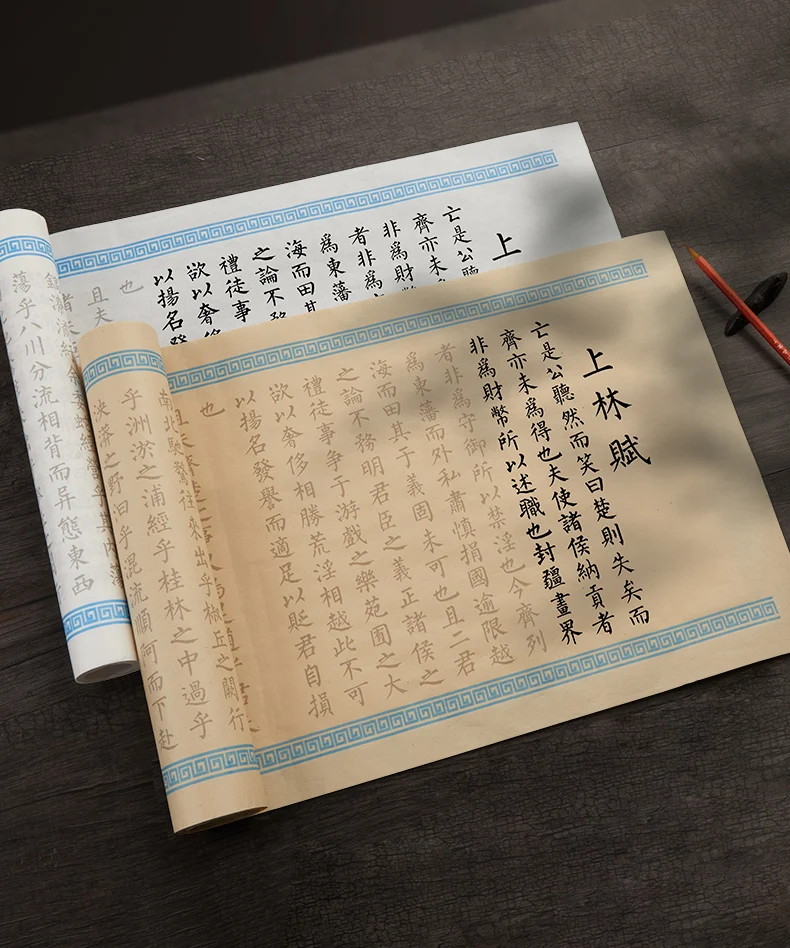 上林賦
亡是公聽然而笑曰楚則失矣而
齊亦未爲得也夫使諸侯納貢者
非爲財幣所以述職也封疆畫界
者非爲守御所以禁淫也今齊列
爲東藩而外私肅慎捐國逾限越
海而田其于義固未可也且二君
之論不務明君臣之義正諸侯之
禮徒事争于游戲之樂苑囿之大
欲以奢侈相勝荒淫相越此不可
以揚名發譽而適足以貶君自損
也
南北馳騖往來出乎椒丘之闕行
乎洲淤之浦經乎桂林之中過乎
泱漭之野汩乎混流順阿而下赴
上
亡是公聽
齊亦未
非爲財幣
者非爲
爲東藩
海而田其
之論不務
禮徒事
欲以奢侈
以揚名發
也
且夫
蕩乎八川分流相背而异態東西